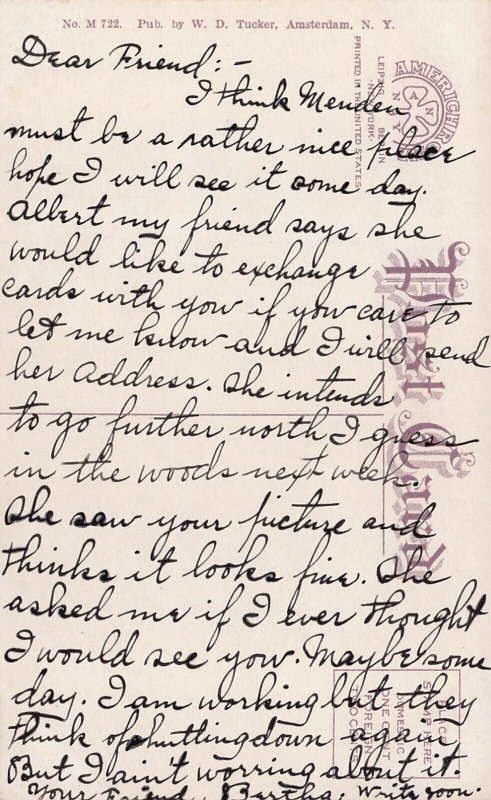 No. M 722. Pub. by W. D. Tucker, Amsterdam, N. Y.
Dear Friend:-
I think Menden
must be a rather nice place
hope I will see it some day.
Albert my friend says she
would like to exchange
cards with you if you care to
let me know and I will send
her address. She intends
to go further north I guess
in the woods next week.
She saw your picture and
thinks it looks fine. She
asked me if I ever thought
I would see you. Maybe some
day. I am working but they
think of shutting down again
But I ain't worring about it.
Your Friend, Bertha. Write soon.
AMERICHROME
A N
N Y
LEIPZIG BERLIN
NEW YORK
PRINTED IN THE UNITED STATES
Post Card
PLACE
STAMP HERE
DOMESTIC
ONE CENT
FOREIGN
TWO CENTS